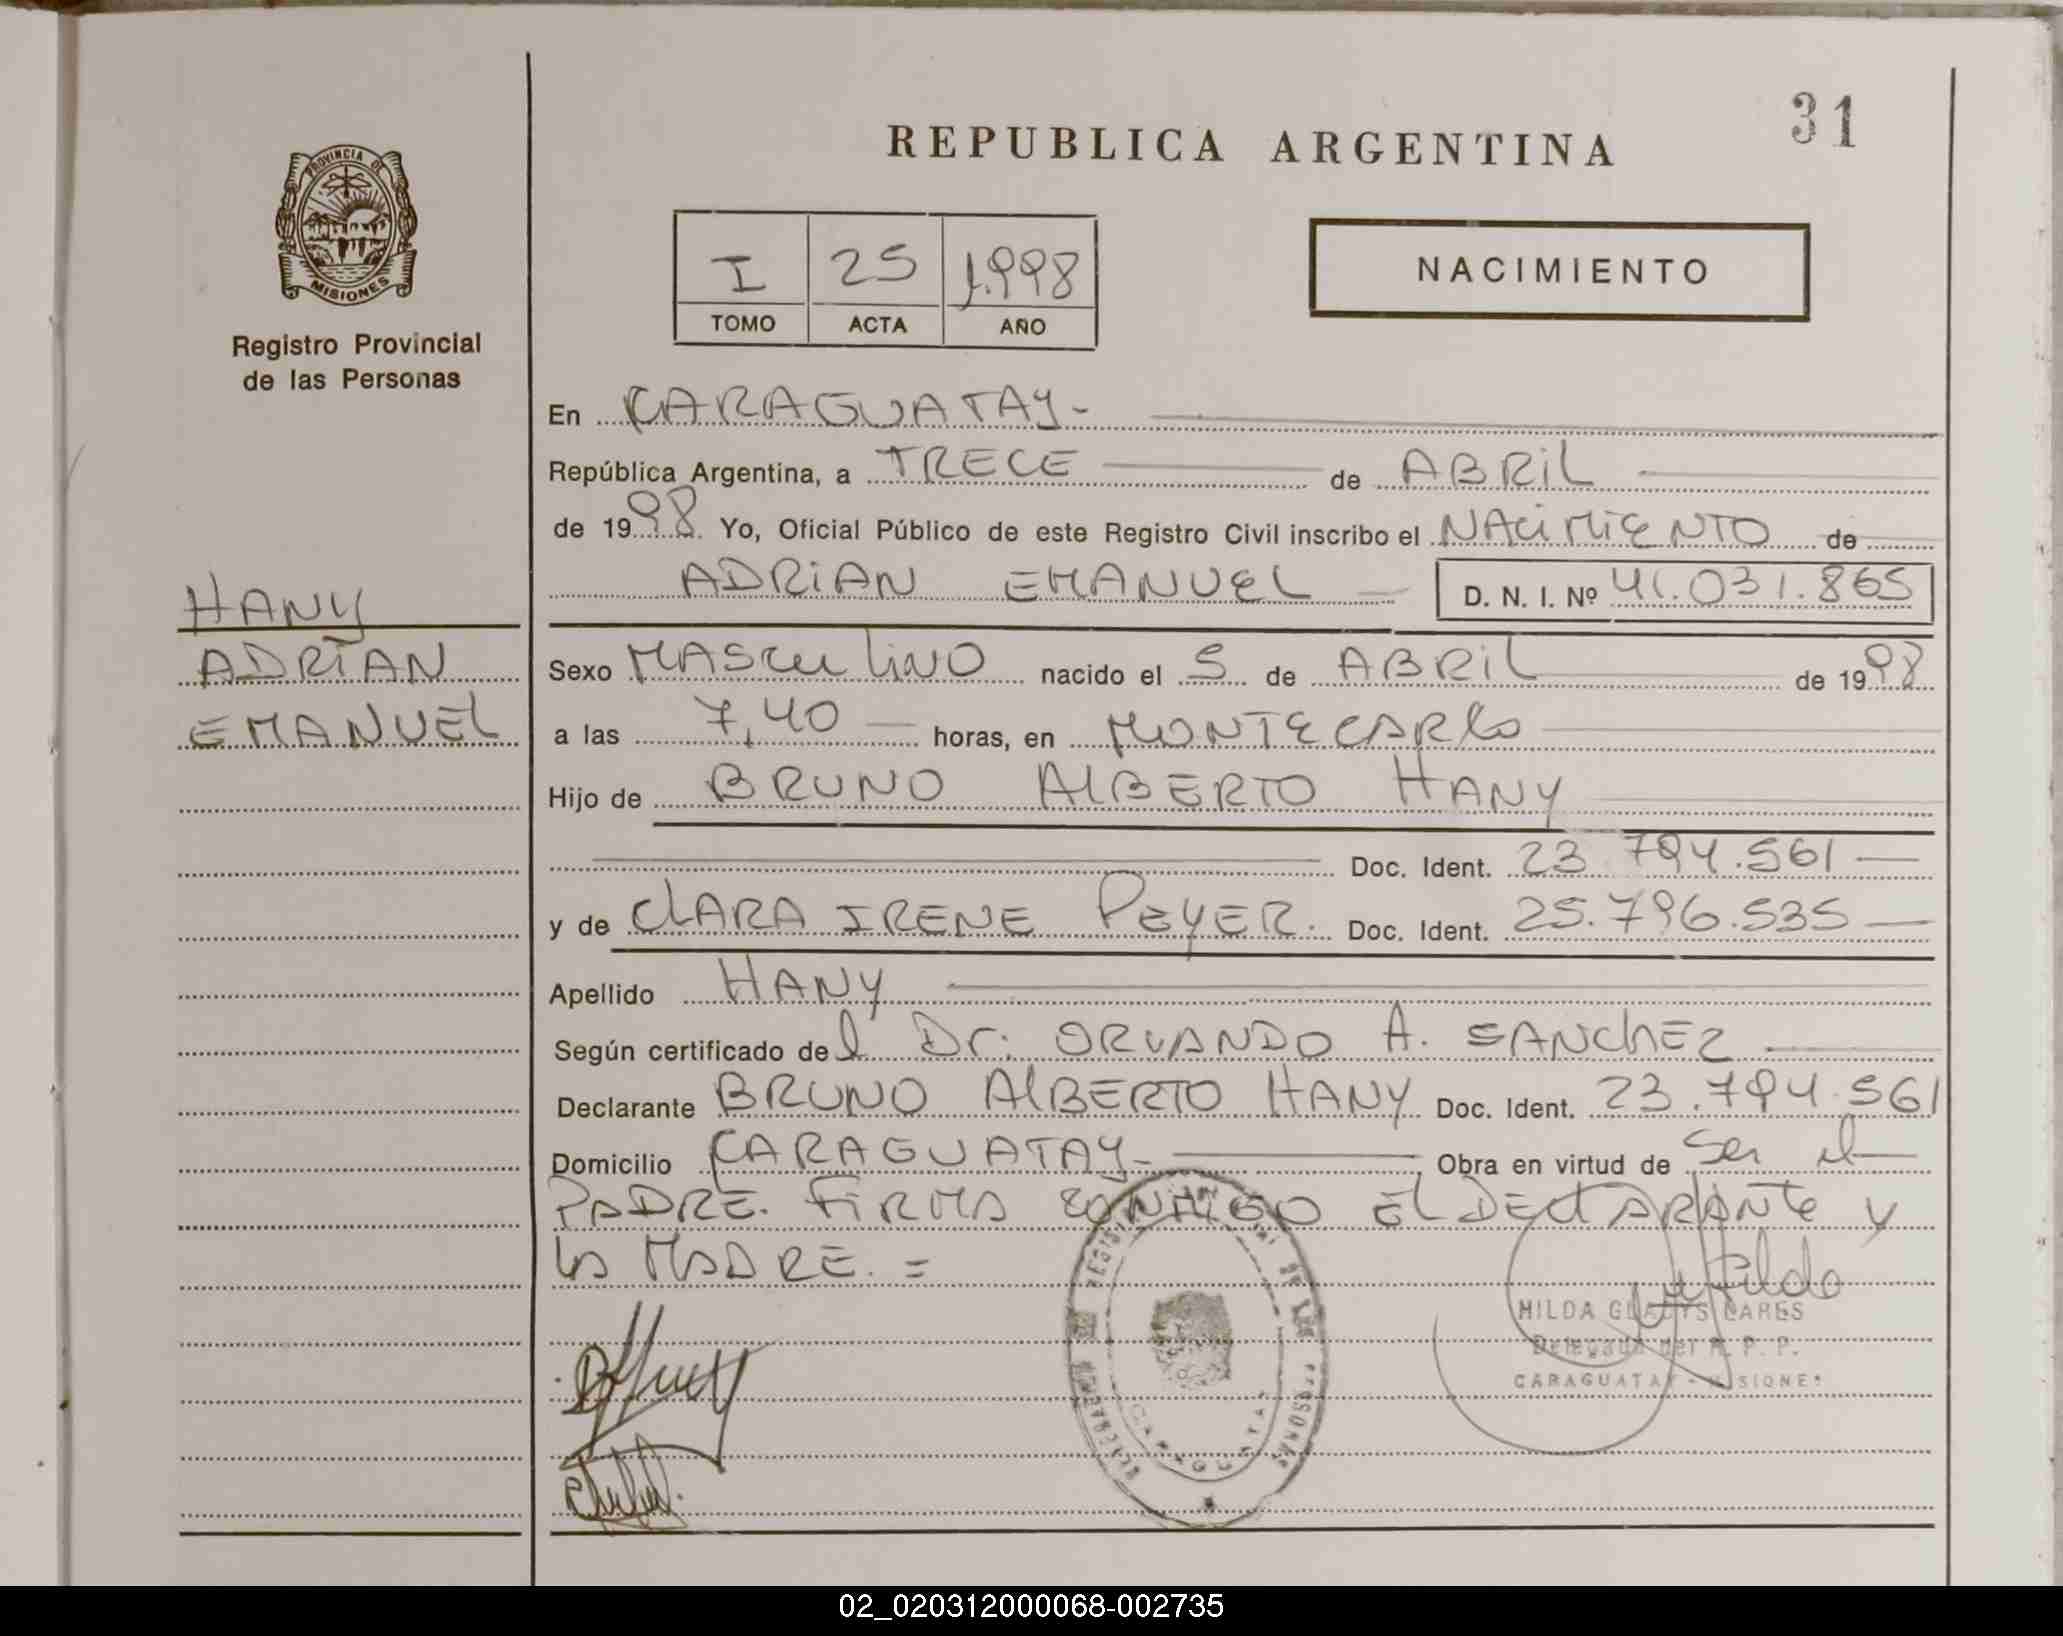 31
REPUBLICA ARGENTINA
PROVINCIA DE
MISIONES
Registro Provincial
de las Personas
I 25 1.998
TOMO ACTA AÑO
NACIMIENTO
En CARAGUATAY-
República Argentina, a TRECE de ABRIL
de 1998 Yo, Oficial Público de este Registro Civil inscribo el NACIMIENTO de
ADRIAN EMANUEL D. N. I. Nº 41.031.865
HANY
ADRIAN
EMANUEL
Sexo MASCULINO nacido el 5 de ABRIL de 1998
a las 7,40 horas, en MONTECARLO
Hijo de BRUNO ALBERTO HANY
Doc. Ident. 23.794.561
y de CLARA IRENE PEYER. Doc. Ident. 25.796.535
Apellido HANY
Según certificado del Dr. ORLANDO A. SANCHEZ
Declarante BRUNO ALBERTO HANY Doc. Ident. 23.794.561
Domicilio CARAGUATAY- Obra en virtud de ser el
PADRE. FIRMA CONMIGO EL DECLARANTE y
LA MADRE. =
HILDA GLADYS LARES
Delegada del R. P. P.
CARAGUATAY - MISIONES
02_020312000068-002735